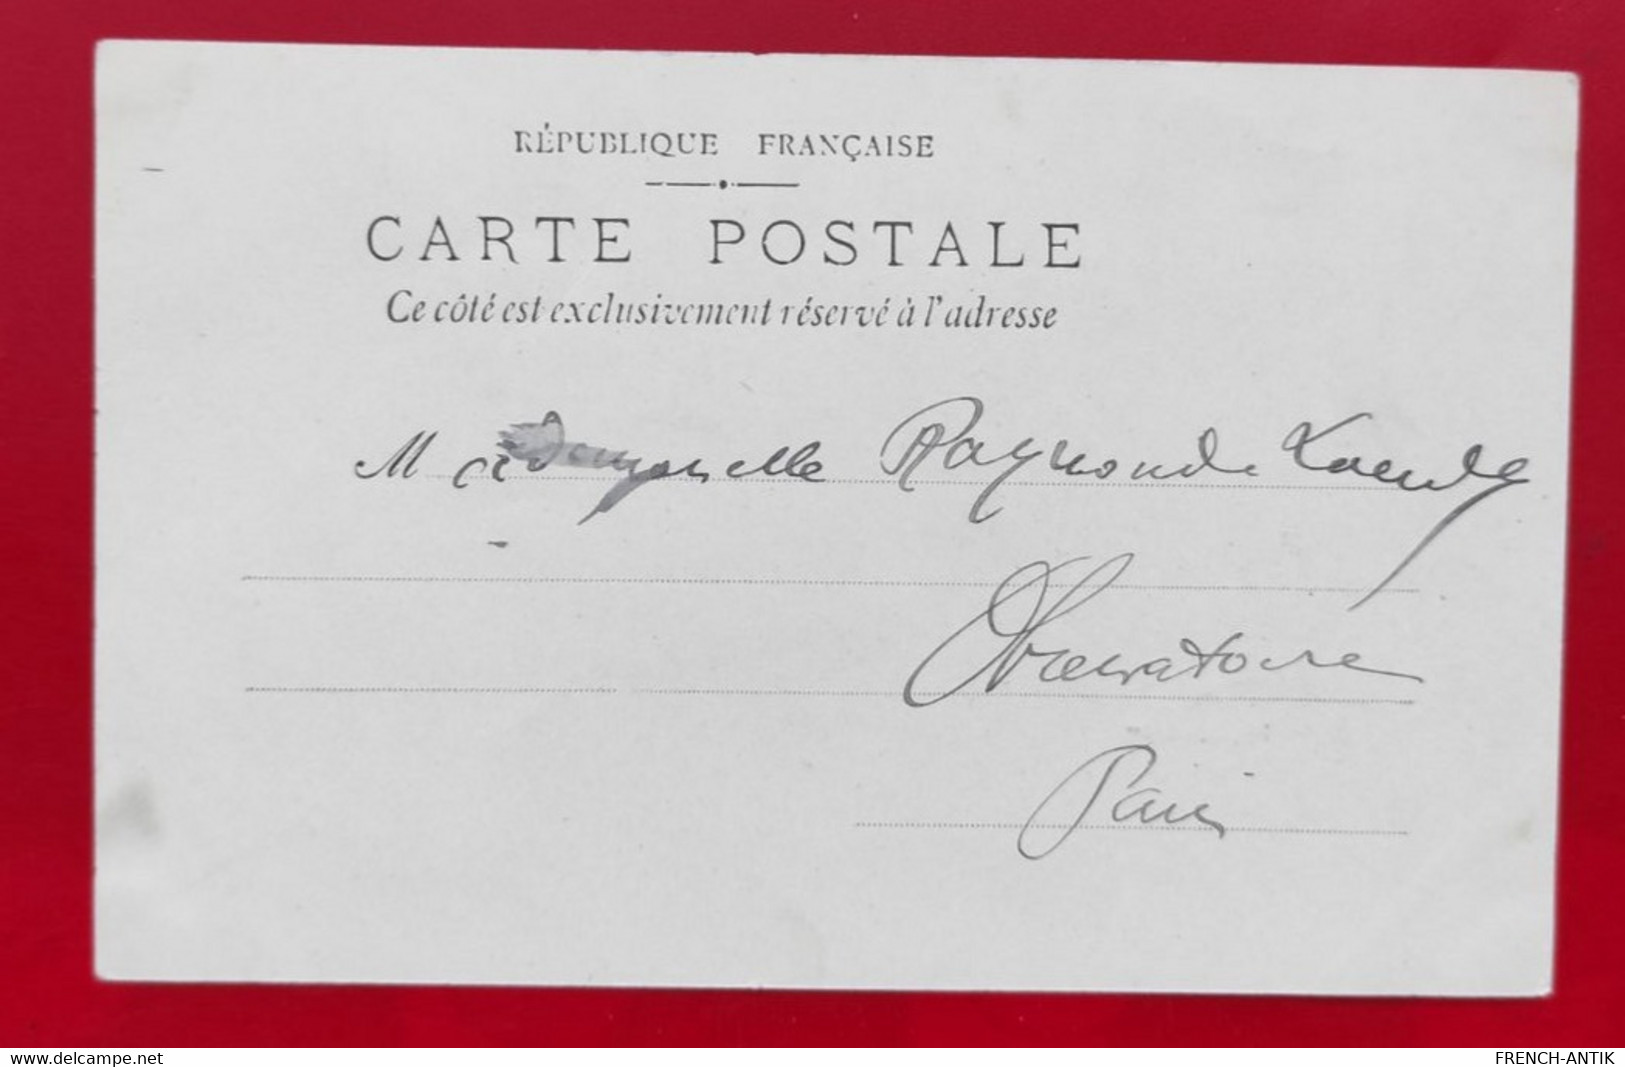 RÉPUBLIQUE FRANÇAISE
CARTE POSTALE
Ce côté est exclusivement réservé à l'adresse
Mademoiselle Raymonde
Observatoire
Paris
www.delcampe.net
FRENCH-ANTIK